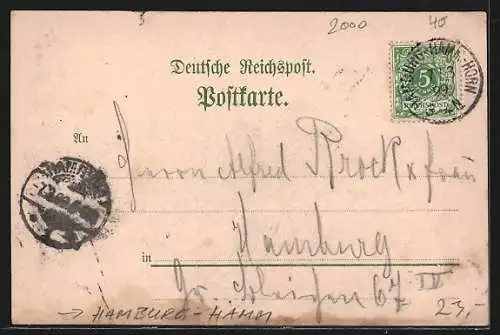 5
2000
40
Deutsche Reichspost.
Postkarte.
5
REICHSPOST
HAMBURG-HAMM-HORN
99
An
Herrn Alfred Krock & Frau
in
Hamburg
Gr. Bleichen 67 IV
→ HAMBURG-HAMM
23,-